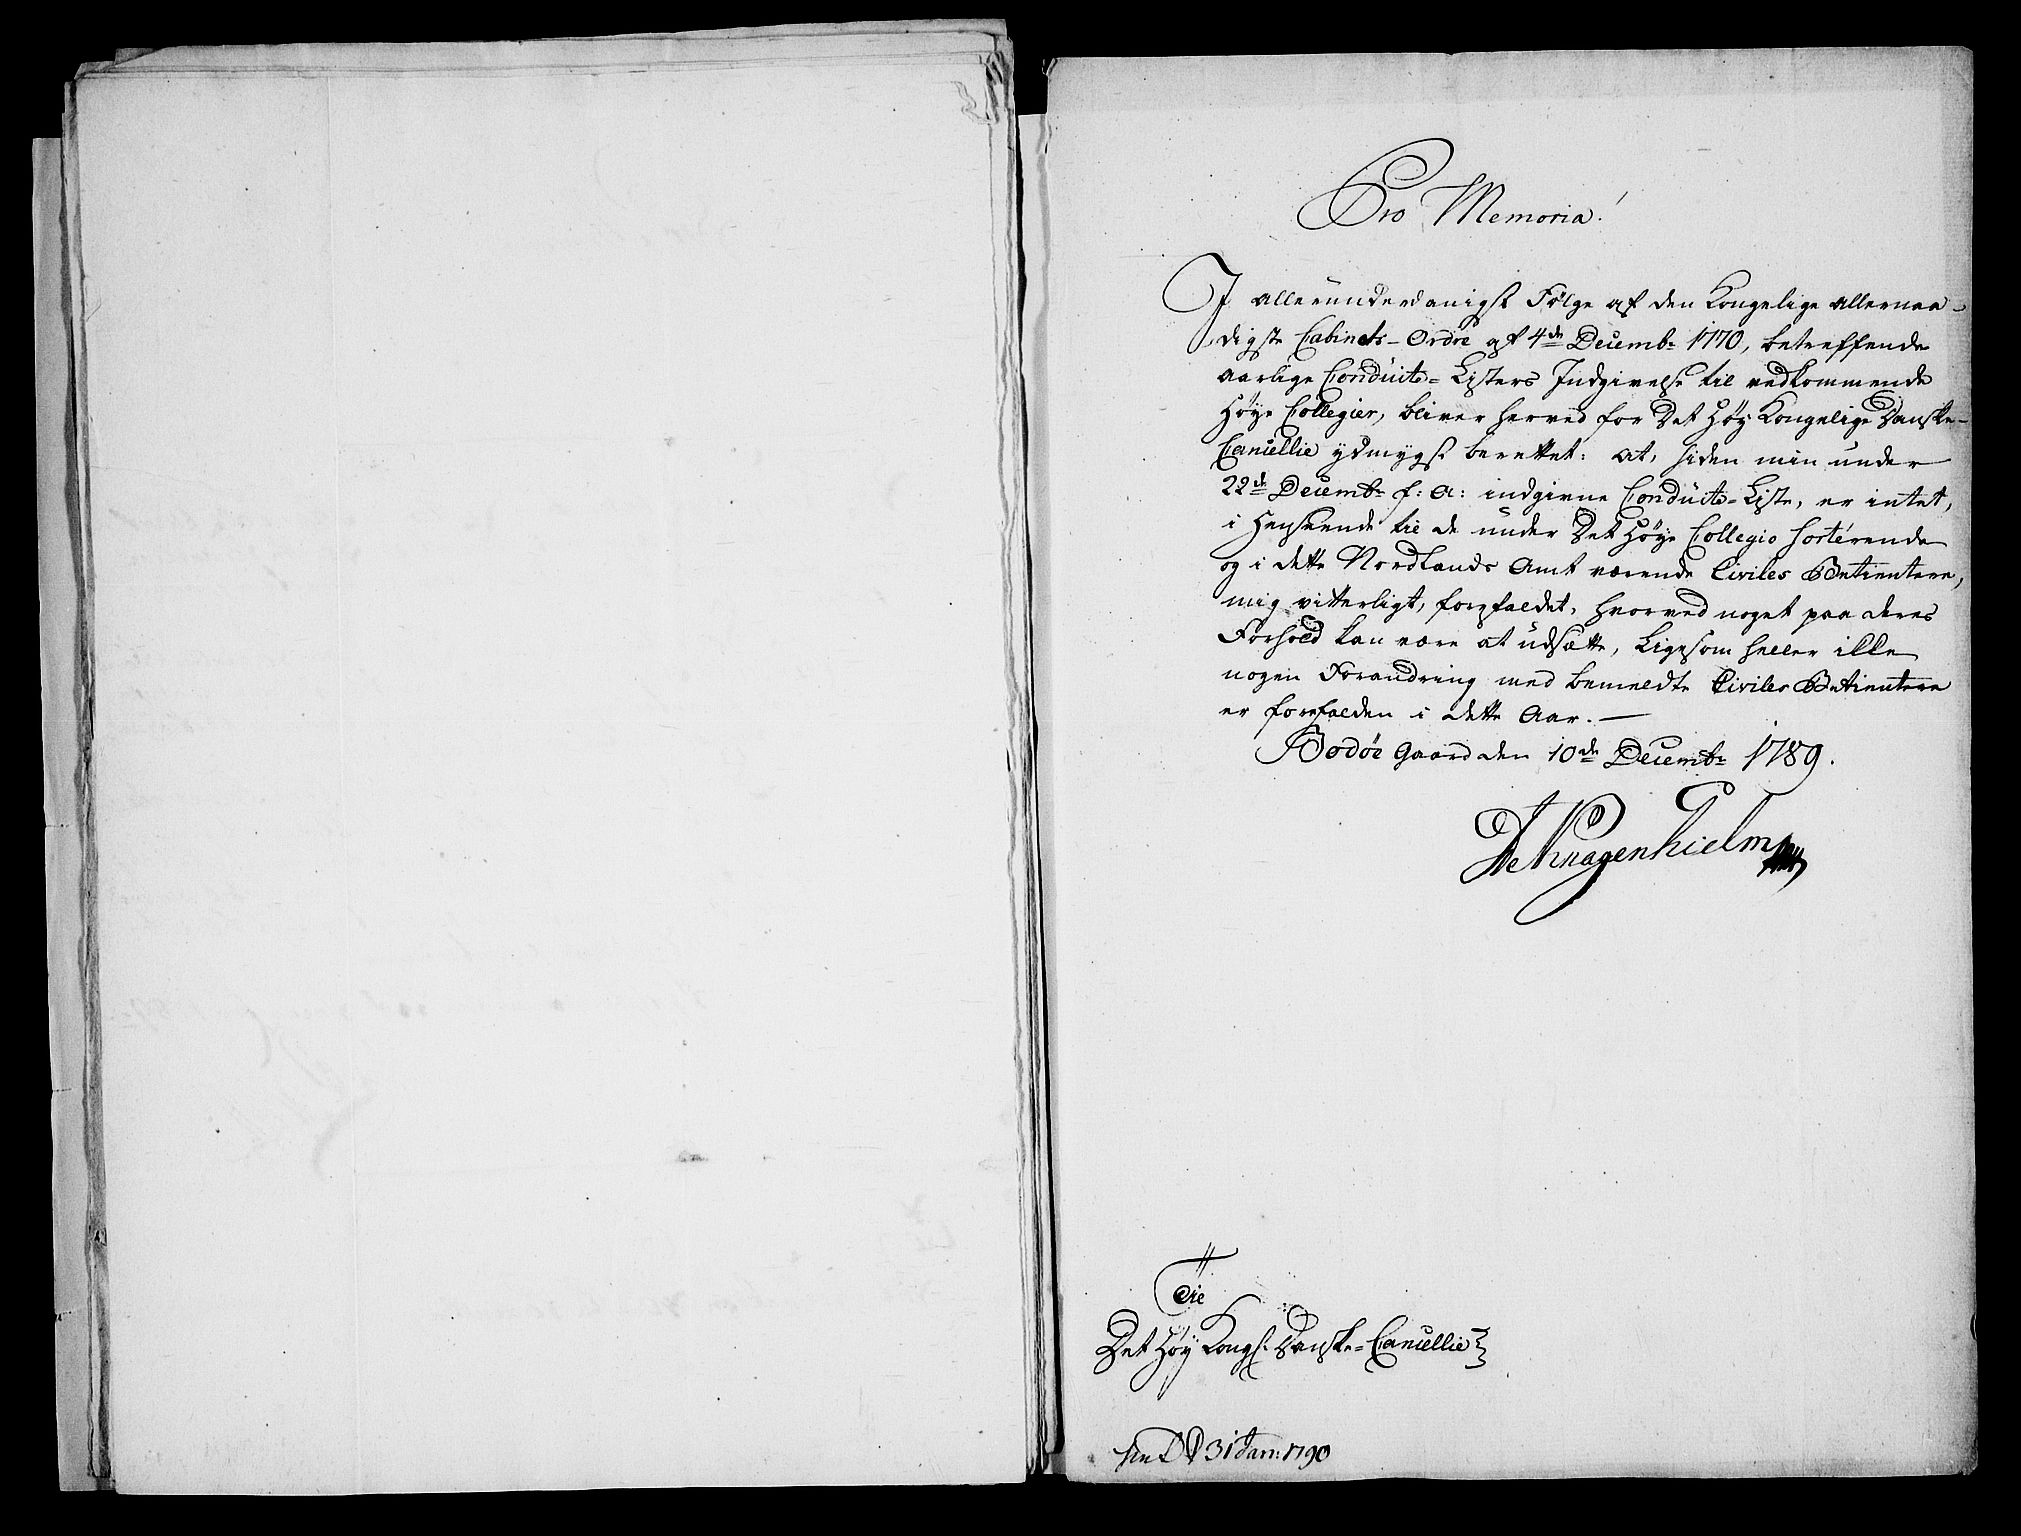 Pro Memoria!
I allerunderdanigst Følge af den Kongelige allernaa-
digste Cabinets-Ordre af 4de Decembr 1770, betreffende
aarlige Conduite-Listers Indgivelse til vedkommende
Høye Collegier, bliver herved for Det Høy Kongelige Danske-
Cancellie ydmygst berettet: at, siden min under
22de Decembr f: A: indgivne Conduite-Liste, er intet,
i Henseende til de under Det Høye Collegio sorterende
og i dette Nordlands Amt værende Civiles Betientere,
mig vitterligt, forefaldet, hvorved noget paa deres
Forhold kan være at udsætte, Ligesom heller ikke
nogen Forandring med bemeldte Civiles Betientere
er forefalden i dette Aar. —
Bodøe Gaard den 10de Decembr 1789.
De Knagenhielm
Til
Det Høy Kongl: Danske-Cancellie
31 Jan: 1790